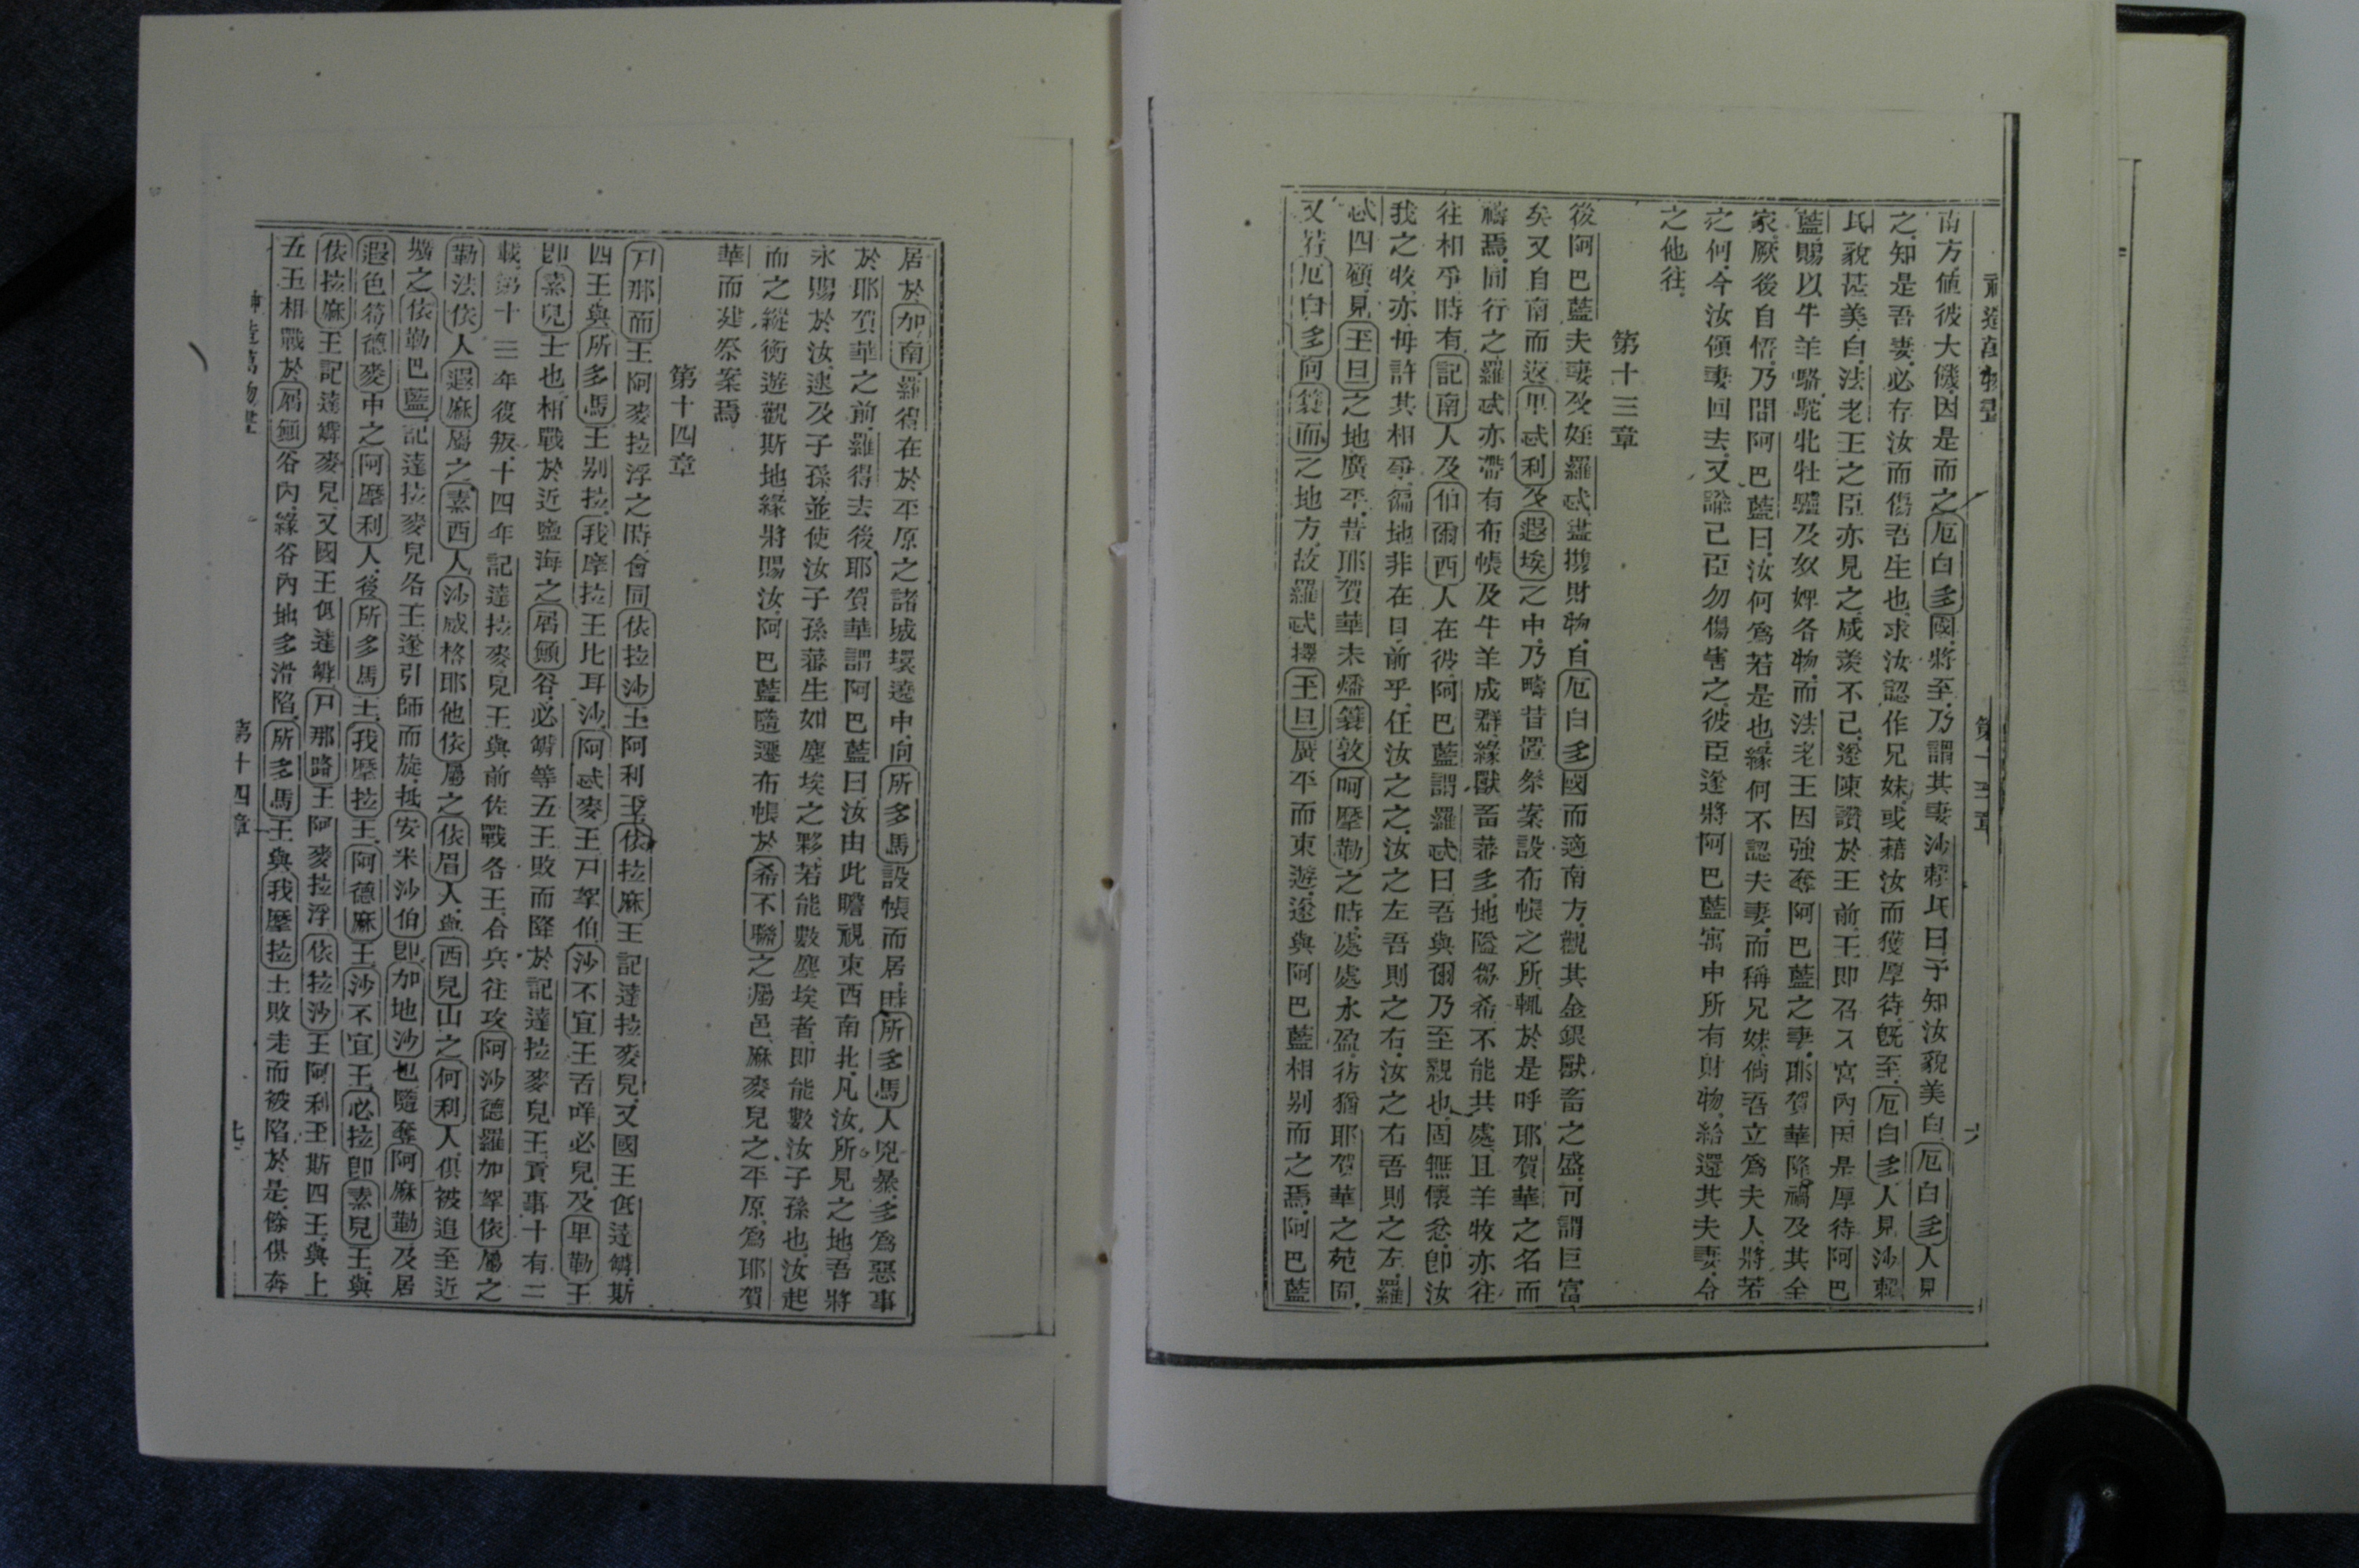 神造萬物書 第十三章 六
南方値彼大饑因是而之厄白多國將至乃謂其妻沙賴氏曰予知汝貌美白厄白多人見
之知是吾妻必存汝而傷吾生也求汝認作兄妹或藉汝而獲厚待旣至厄白多人見沙賴
氏貌甚美白法老王之臣亦見之咸羨不已遂陳讚於王前王即召入宮內因是厚待阿巴
藍賜以牛羊駱駝牝牡驢及奴婢各物而法老王因強奪阿巴藍之妻耶賀華降禍及其全
家厥後自悟乃問阿巴藍曰汝何爲若是也緣何不認夫妻而稱兄妹倘吾立爲夫人將若
之何今汝領妻回去又諭己臣勿傷害之彼臣遂將阿巴藍寓中所有財物給還其夫妻令
之他往
第十三章
後阿巴藍夫妻及姪羅忒盡攜財物自厄白多國而適南方觀其金銀獸畜之盛可謂巨富
矣又自南而返畢忒利及遐埃之中乃疇昔置祭案設布帳之所輒於是呼耶賀華之名而
禱焉同行之羅忒亦帶有布帳及牛羊成群緣獸畜蕃多地隘芻希不能共處且羊牧亦往
往相爭時有記南人及伯爾西人在彼阿巴藍謂羅忒曰吾與爾乃至親也固無懷忿卽汝
我之牧亦毋許其相爭徧地非在目前乎任汝之之汝之左吾則之右汝之右吾則之左羅
忒四顧見玊旦之地廣平昔耶賀華未燔簔敦呵摩勒之時處處水盈彷猶耶賀華之苑囿
又若厄白多向簔而之地方故羅忒擇玊旦廣平而東遊遂與阿巴藍相别而之焉阿巴藍
居於加南羅得在於平原之諸城環遶中向所多馬設帳而居時所多馬人兇暴多爲惡事
於耶賀華之前羅得去後耶賀華謂阿巴藍曰汝由此瞻視東西南北凡汝所見之地吾將
永賜於汝逮及子孫並使汝子孫蕃生如塵埃之夥若能數塵埃者即能數汝子孫也汝起
而之縱衡遊觀斯地緣將賜汝阿巴藍隨遷布帳於希不聯之屬邑麻麥兒之平原爲耶賀
華而建祭案焉
第十四章
尸那而王阿麥拉浮之時會同依拉沙王阿利王依拉麻王記達拉麥兒又國王低達𨭎斯
四王與所多馬王别拉我摩拉王比耳沙阿忒麥王尸挐伯沙不宜王舌咩必兒及畢勒王
即素兒王也相戰於近鹽海之居顱谷必𨭎等五王敗而降於記達拉麥兒王貢事十有二
載第十三年復叛十四年記達拉麥兒王與前佐戰各王合兵往攻阿沙德羅加挐依屬之
勒法依人遐麻屬之素西人沙咸格耶他依屬之依眉人與西兒山之何利人俱被追至近
壙之依勒巴藍記達拉麥兒各王遂引師而旋抵安米沙伯卽加地沙也隨奪阿麻勒及居
遐色符德麥中之阿摩利人後所多馬王我摩拉王阿德麻王沙不宜王必拉卽素兒王與
依拉麻王記達𨭎麥兒又國王低達𨭎尸那路王阿麥拉浮依拉沙王阿利玊斯四王與上
五王相戰於居顱谷內緣谷內地多滑陷所多馬王與我摩拉王敗走而被陷於是餘俱奔
神造萬物書 第十四章 七